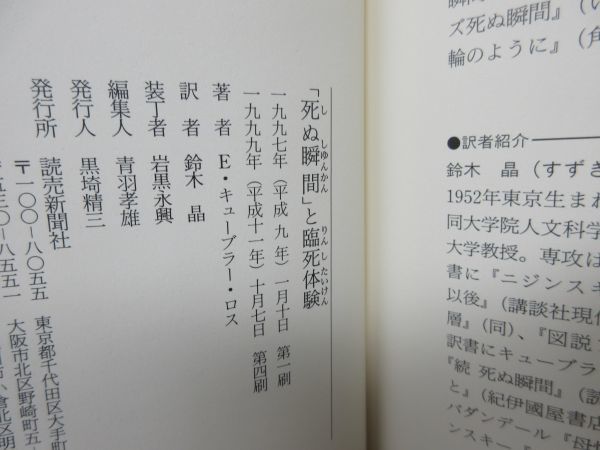 瞬間』（い
ズ死ぬ瞬間』（
輪のように』（角
●訳者紹介
鈴木 晶（すずき
1952年東京生まれ
同大学院人文科学
大学教授。専攻は
書に『ニジンスキ
以後』（講談社現代
層』（同）、『図説
訳書にキューブラ
『続 死ぬ瞬間』（読
と』（紀伊國屋書店
バダンデール『母性
ンスキー』
「死ぬ瞬間」と臨死体験
し しゆんかん りんし たいけん
一九九七年（平成 九 年）一月十日 第一刷
一九九九年（平成十一年）十月七日 第四刷
著者 E・キューブラー・ロス
訳者 鈴木 晶
装丁者 岩黒永興
編集人 青羽孝雄
発行人 黒埼精三
発行所 読売新聞社
〒一〇〇−八〇五五 東京都千代田区大手町
〒五三〇−八五五一 大阪市北区野崎町五
北区明